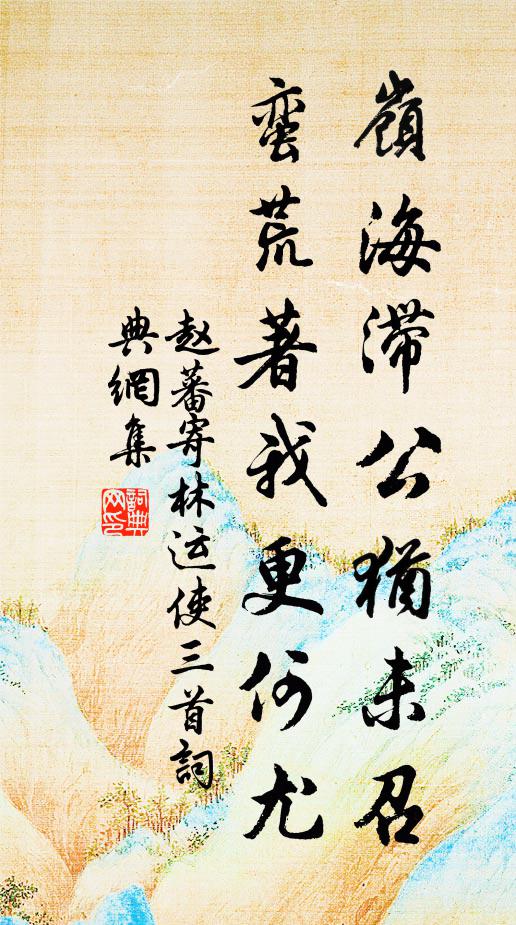 嶺海滯公猶未召
蛮荒著我更何尤
赵蕃寄林运使三首詞
典網集
詞典
网印